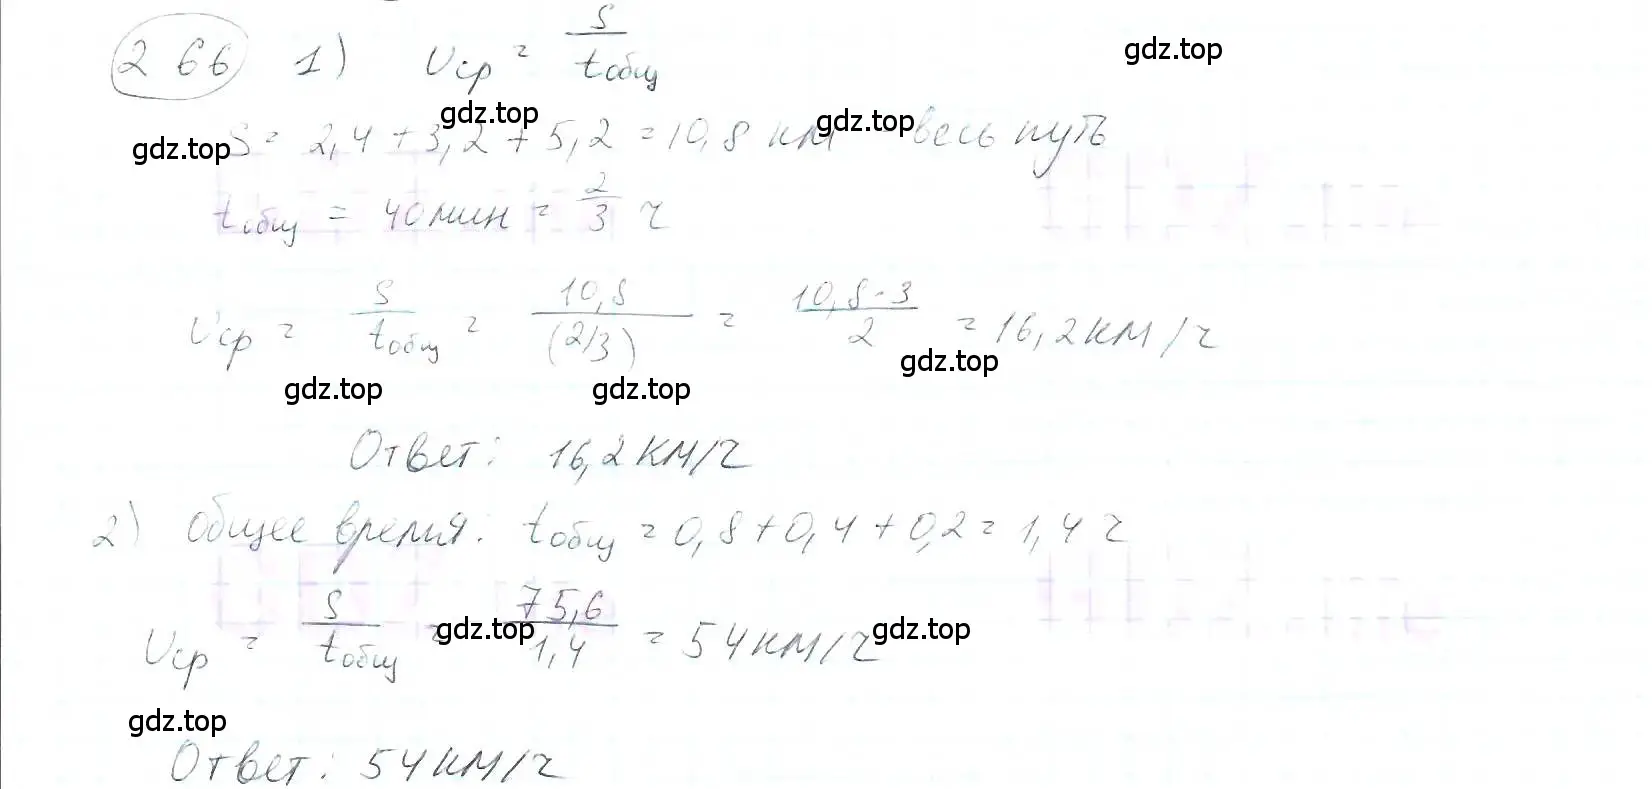 266 1) υср = S/tобщ gdz.top
gdz.top gdz.top gdz.top
S = 2,4 + 3,2 + 5,2 = 10,8 км - весь путь
tобщ = 40 мин = 2/3 ч
υср = S/tобщ = 10,8/(2/3) = 10,8·3/2 = 16,2 км/ч
gdz.top gdz.top gdz.top
Ответ: 16,2 км/ч
2) общее время: tобщ = 0,8 + 0,4 + 0,2 = 1,4 ч
υср = S/tобщ = 75,6/1,4 = 54 км/ч
gdz.top gdz.top
gdz.top
Ответ: 54 км/ч